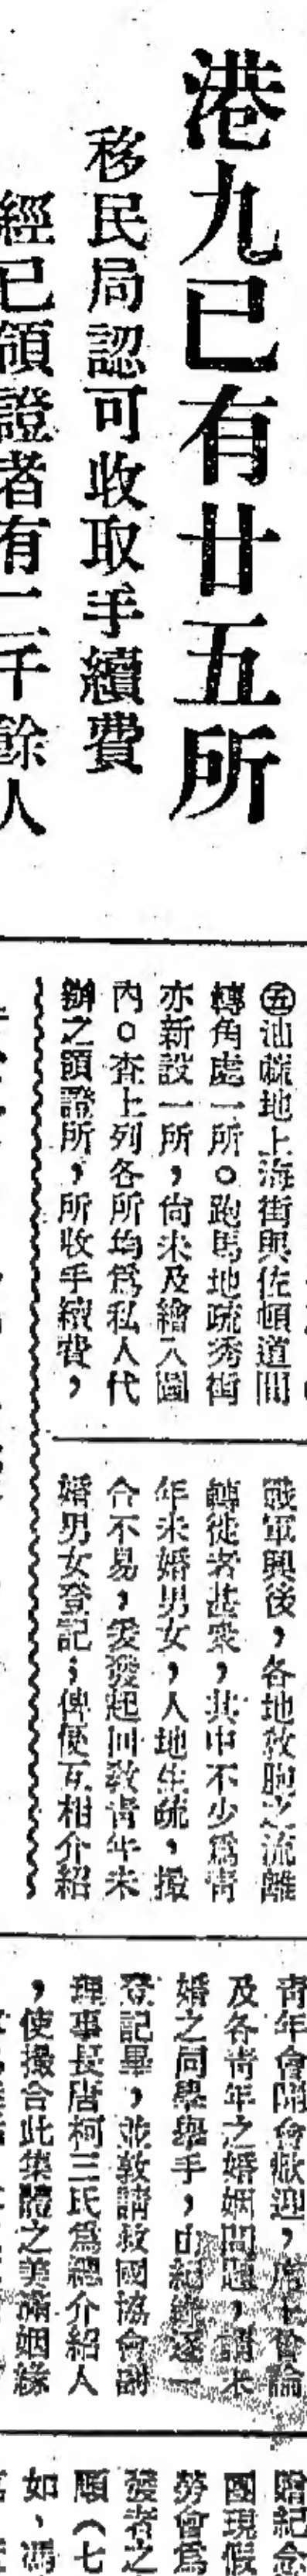 港九已有廿五所
移民局認可收取手續費
經已領證者有二千餘人
㊄油蔴地上海街與佐頓道間
轉角處一所。跑馬地疏秀街
亦新設一所，尙未及繪入圖
內。查上列各所均爲私人代
辦之領證所，所收手續費，
戰軍興後，各地敎胞之流離
轉徙者甚衆，其中不少爲靑
年未婚男女，人地生疏，撮
合不易，爰發起回敎靑年未
婚男女登記，俾便互相介紹
靑年會開會歡迎，席上會論
及各靑年之婚姻問題，請未
婚之同學舉手，由紀錄逐一
登記畢，並敦請救國協會副
理事長唐柯三氏爲總介紹人
，使撮合此集體之美滿姻緣
贈紀念
國現假
勞會爲
發者之
願（七
如、馮